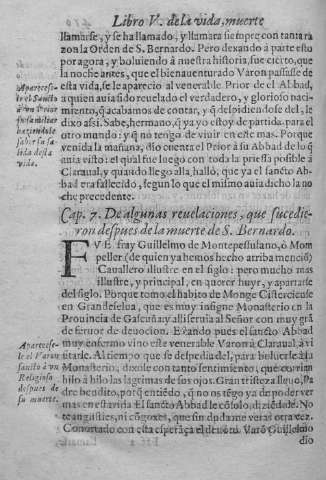 Libro V. de la vida, muerte
llamarse, y se ha llamado, y llamara siempre con tanta ra
zon la Orden de S. Bernardo. Pero dexando à parte esto
por agora, y boluiendo à nuestra historia, fue cierto, que
la noche antes, que el bienauenturado Varon passasse de
esta vida, se le aparecio al venerable Prior de el Abbad,
a quien auia sido reuelado el verdadero, y glorioso naci-
miento, q̃ acabamos de contar, y q̃ despidiendose del, le
dixo assi. Sabe, hermano, q̃ ya yo estoy de partida para el
otro mundo: y q̃ no tengo de viuir en este mas. Porque
venida la mañana, dio cuenta el Prior à su Abbad de lo q̃
auia visto: el qual fue luego con toda la priessa possible à
Claraual, y quando llego alla, hallò, que ya el sancto Ab-
bad era fallecido, segun lo que el mismo auia dicho la no
che precedente.
Aparecese
el Sancto
à vn Prior
haziendole
saber su sa
lida desta
vida.
Cap. 7. De algunas reuelaciones, que sucedie-
ron despues de la muerte de S. Bernardo.
FVE fray Guillelmo de Montepessulano, ò Mom
peller (de quien ya hemos hecho arriba menciõ)
Cauallero illustre en el siglo: pero mucho mas
illustre, y principal, en querer huyr, y apartarse
del siglo. Porque tomo el habito de Monge Cisterciense
en Grandeselua, que es muy insigne Monasterio en la
Prouincia de Gascuña y alli seruia al Señor con muy grã
de feruor de deuocion. Estando pues el sancto Abbad
muy enfermo vino este venerable Varon à Claraual, à vi
sitarle. Al tiempo que se despedia del, para boluerse à su
Monasterio, dixole con tanto sentimiento, que corrian
hilo à hilo las lagrimas de sus ojos. Gran tristeza lleuo, Pa
dre bendito, porq̃ entiẽdo, q̃ no os tẽgo ya de poder ver
mas en esta vida El sancto Abbad le cõsolo, diziẽdole. No
te angusties, ni cõgoxes, que sin duda me veras otra vez.
Confortado con esta esperãça el deuoto Varõ Guillelmo
Aparecese-
le el Varon
sancto à vn
Religioso
despues de
su muerte.
dio